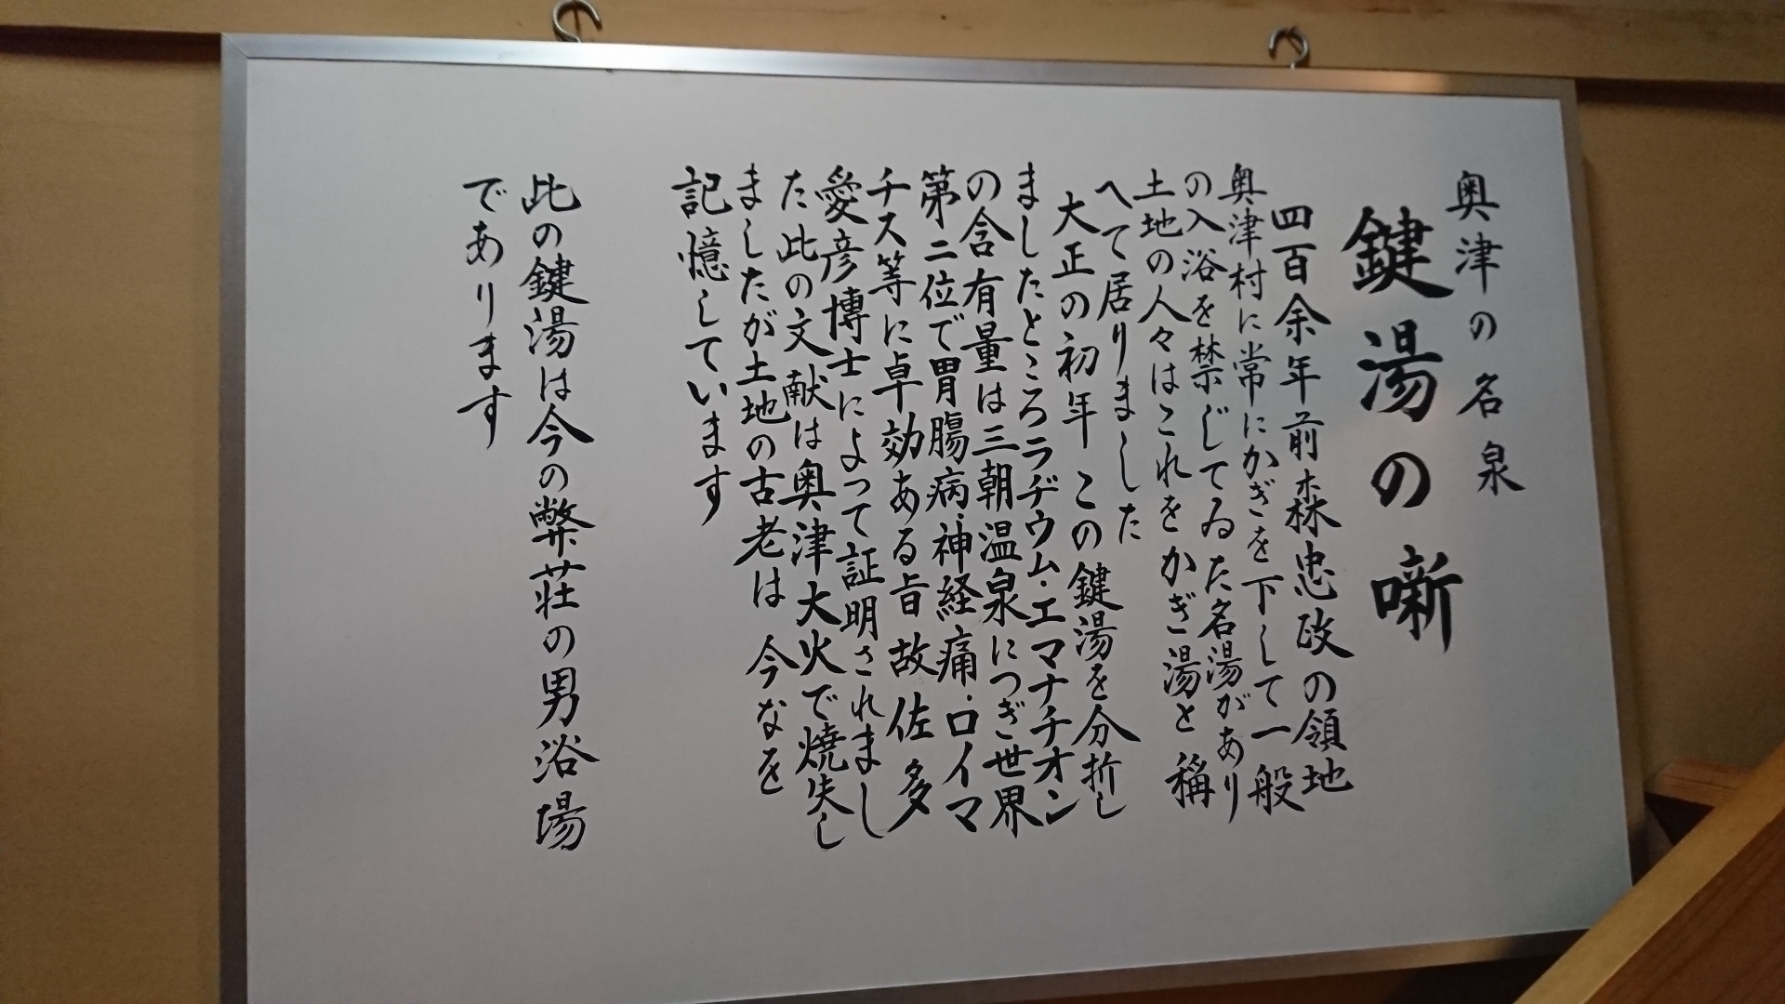 奥津の名泉
鍵湯の噺
四百余年前森忠政の領地
奥津村に常にかぎを下して一般
の入浴を禁じてゐた名湯があり
土地の人々はこれをかぎ湯と稱
へて居りました
大正の初年この鍵湯を分折し
ましたところラヂウム・エマナチオン
の含有量は三朝温泉につぎ世界
第二位で胃腸病・神経痛・ロイマ
チス等に卓効ある旨故佐多
愛彦博士によって証明されまし
た此の文献は奥津大火で焼失し
ましたが土地の古老は今なを
記憶しています
此の鍵湯は今の弊荘の男浴場
であります